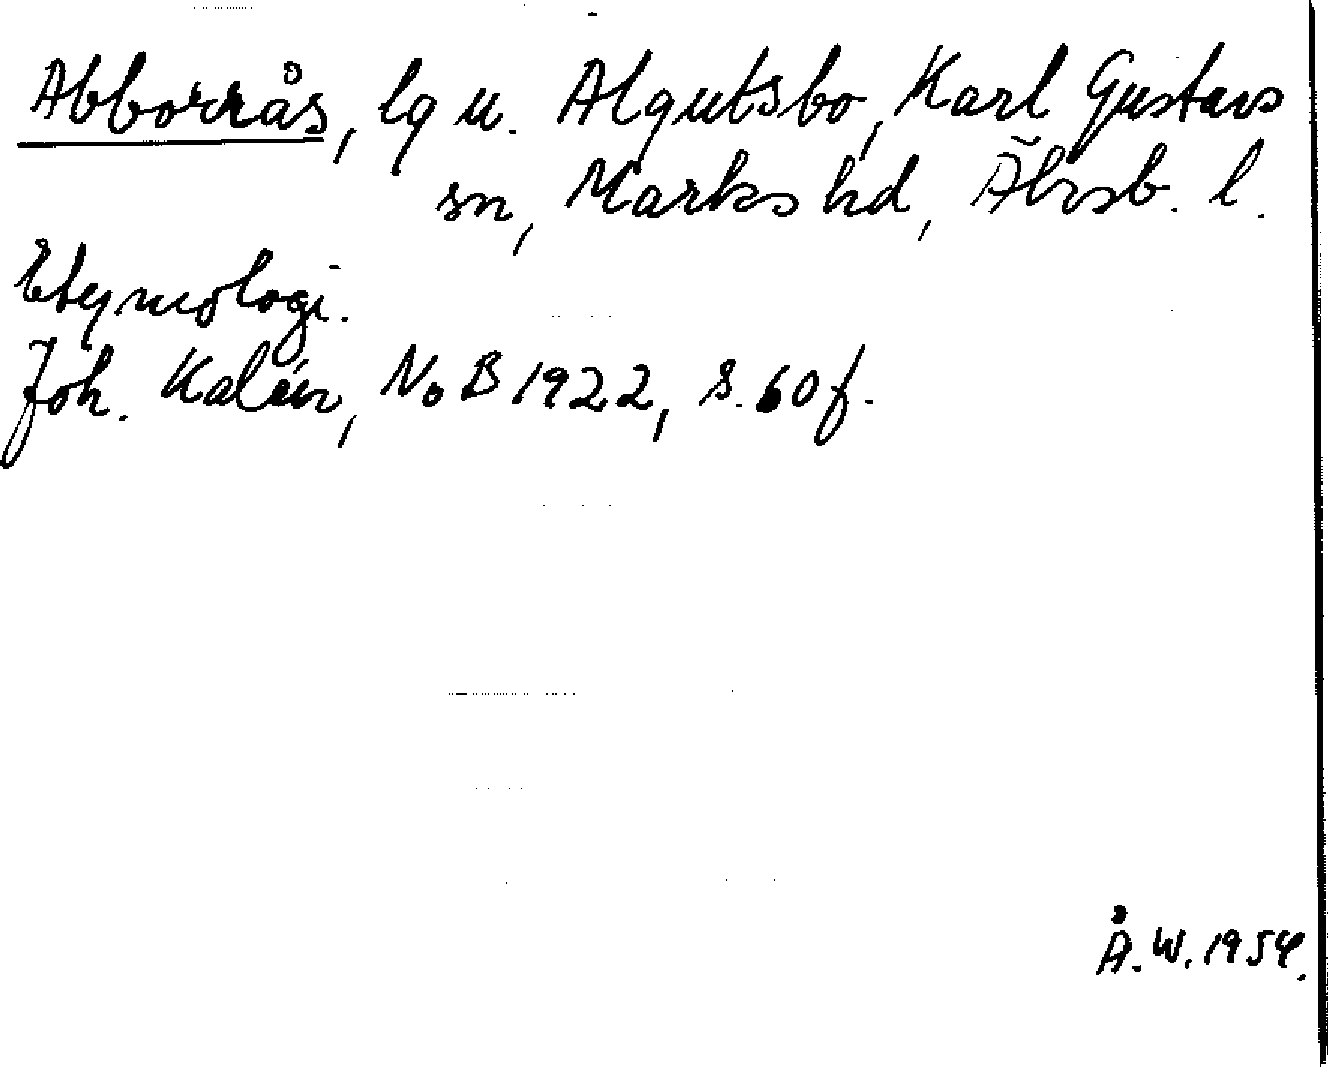 Abborrås, lg u. Algutsbo, Karl Gustavs
sn, Marks hd, Älvsb. l.
Etymologi.
Joh. Kalén, NoB 1922, s. 60f.
Å.W. 1954.